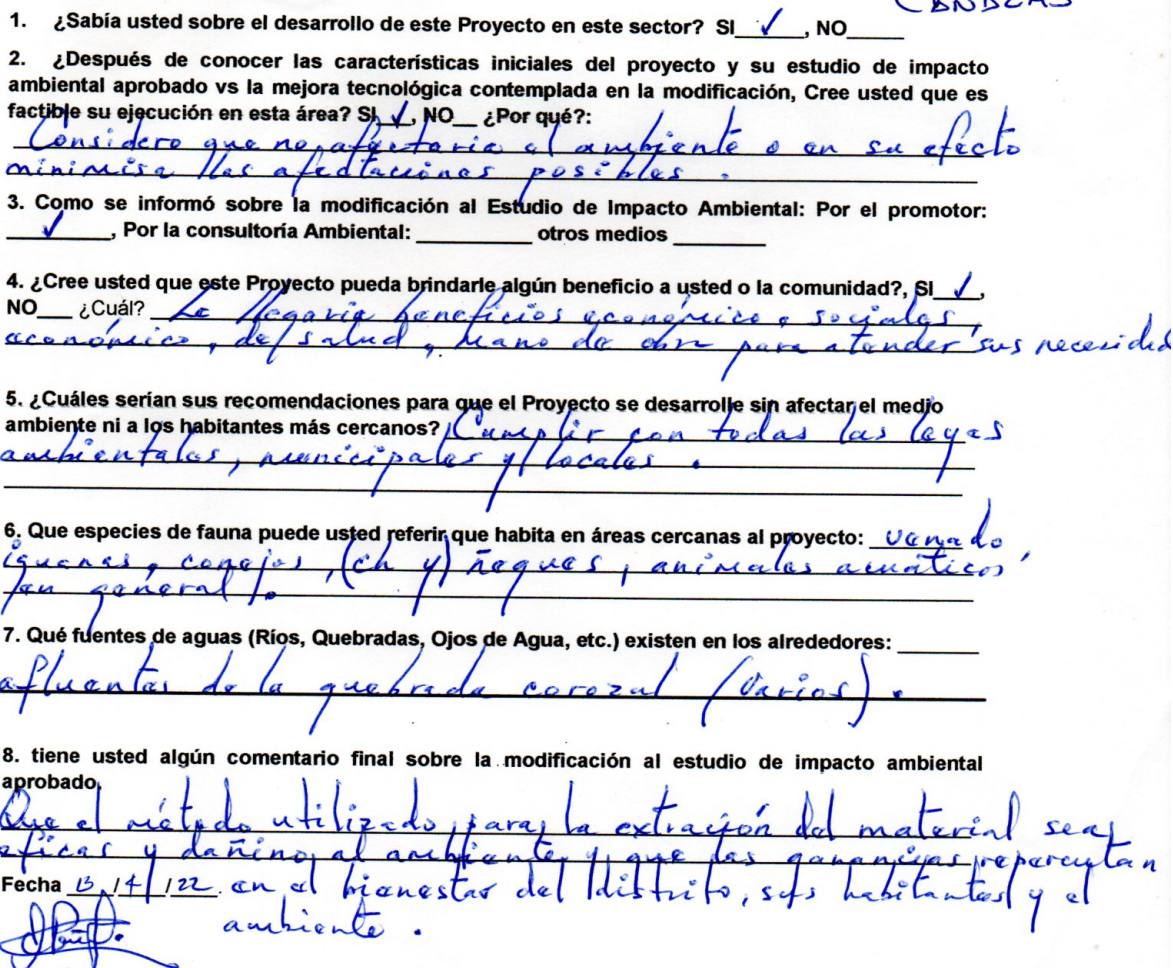 1. ¿Sabía usted sobre el desarrollo de este Proyecto en este sector? SI ✓, NO_____
2. ¿Después de conocer las características iniciales del proyecto y su estudio de impacto
ambiental aprobado vs la mejora tecnológica contemplada en la modificación, Cree usted que es
factible su ejecución en esta área? SI ✓, NO__ ¿Por qué?:
Considero que no afectaria al ambiente o en su efecto
minimisa las afectaciones posibles.
3. Como se informó sobre la modificación al Estudio de Impacto Ambiental: Por el promotor:
___✓___, Por la consultoría Ambiental: __________ otros medios ________
4. ¿Cree usted que este Proyecto pueda brindarle algún beneficio a usted o la comunidad?, SI ✓,
NO___ ¿Cuál? Le llegaria beneficios económico, sociales,
económico, de salud, mano de obra para atender sus necesidad
5. ¿Cuáles serían sus recomendaciones para que el Proyecto se desarrolle sin afectar el medio
ambiente ni a los habitantes más cercanos? Cumplir con todas las leyes
ambientales, municipales y locales.
6. Que especies de fauna puede usted referir que habita en áreas cercanas al proyecto: venado,
iguanas, conejos, (ch y) ñeques, animales acuáticos
en general.
7. Qué fuentes de aguas (Ríos, Quebradas, Ojos de Agua, etc.) existen en los alrededores: ______
afluentes de la quebrada corozal (Varios).
8. tiene usted algún comentario final sobre la modificación al estudio de impacto ambiental
aprobado.
Que el método utilizado, para la extración del material sea
eficas y dañino al ambiente y que las ganancias repercutan
Fecha 13 /4/ 22 en el bienestar del distrito, sus habitantes y el
ambiente.